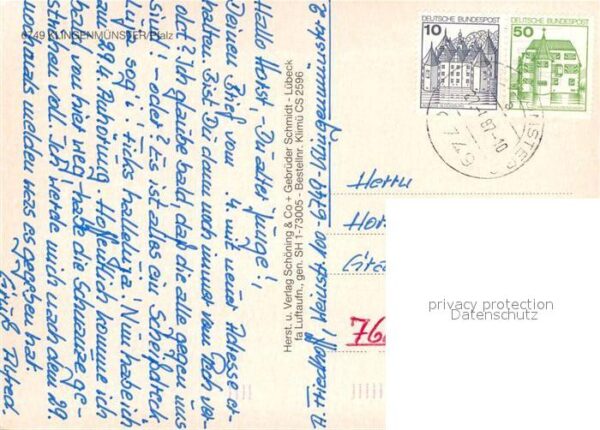 6749 KLINGENMÜNSTER/Pfalz
Hallo Horst - Du alter Junge!
Deinen Brief vom .4. mit neuer Adresse er-
halten. Bist Du dann noch immer vom Pech ver-
folgt? Ich glaube bald, daß die alle gegen uns
sind! - oder? Es ist alles ein Scheißdreck,
sag i! Nun habe ich
zum 29.4. Anhörung. Hoffentlich komme ich
bald von hier weg, habe die Schnauze ge-
strichen voll. Ich werde mich nach dem 29.
nochmals melden was es gegeben hat.
Gruß Alfred.
Herst. u. Verlag Schöning & Co + Gebrüder Schmidt - Lübeck
fa Luftaufn., gen. SH 1-73005 - Bestellnr. Klimü CS 2596
DEUTSCHE BUNDESPOST
10
DEUTSCHE BUNDESPOST
50
87-10
6749
Herrn
Hor
762
privacy protection
Datenschutz